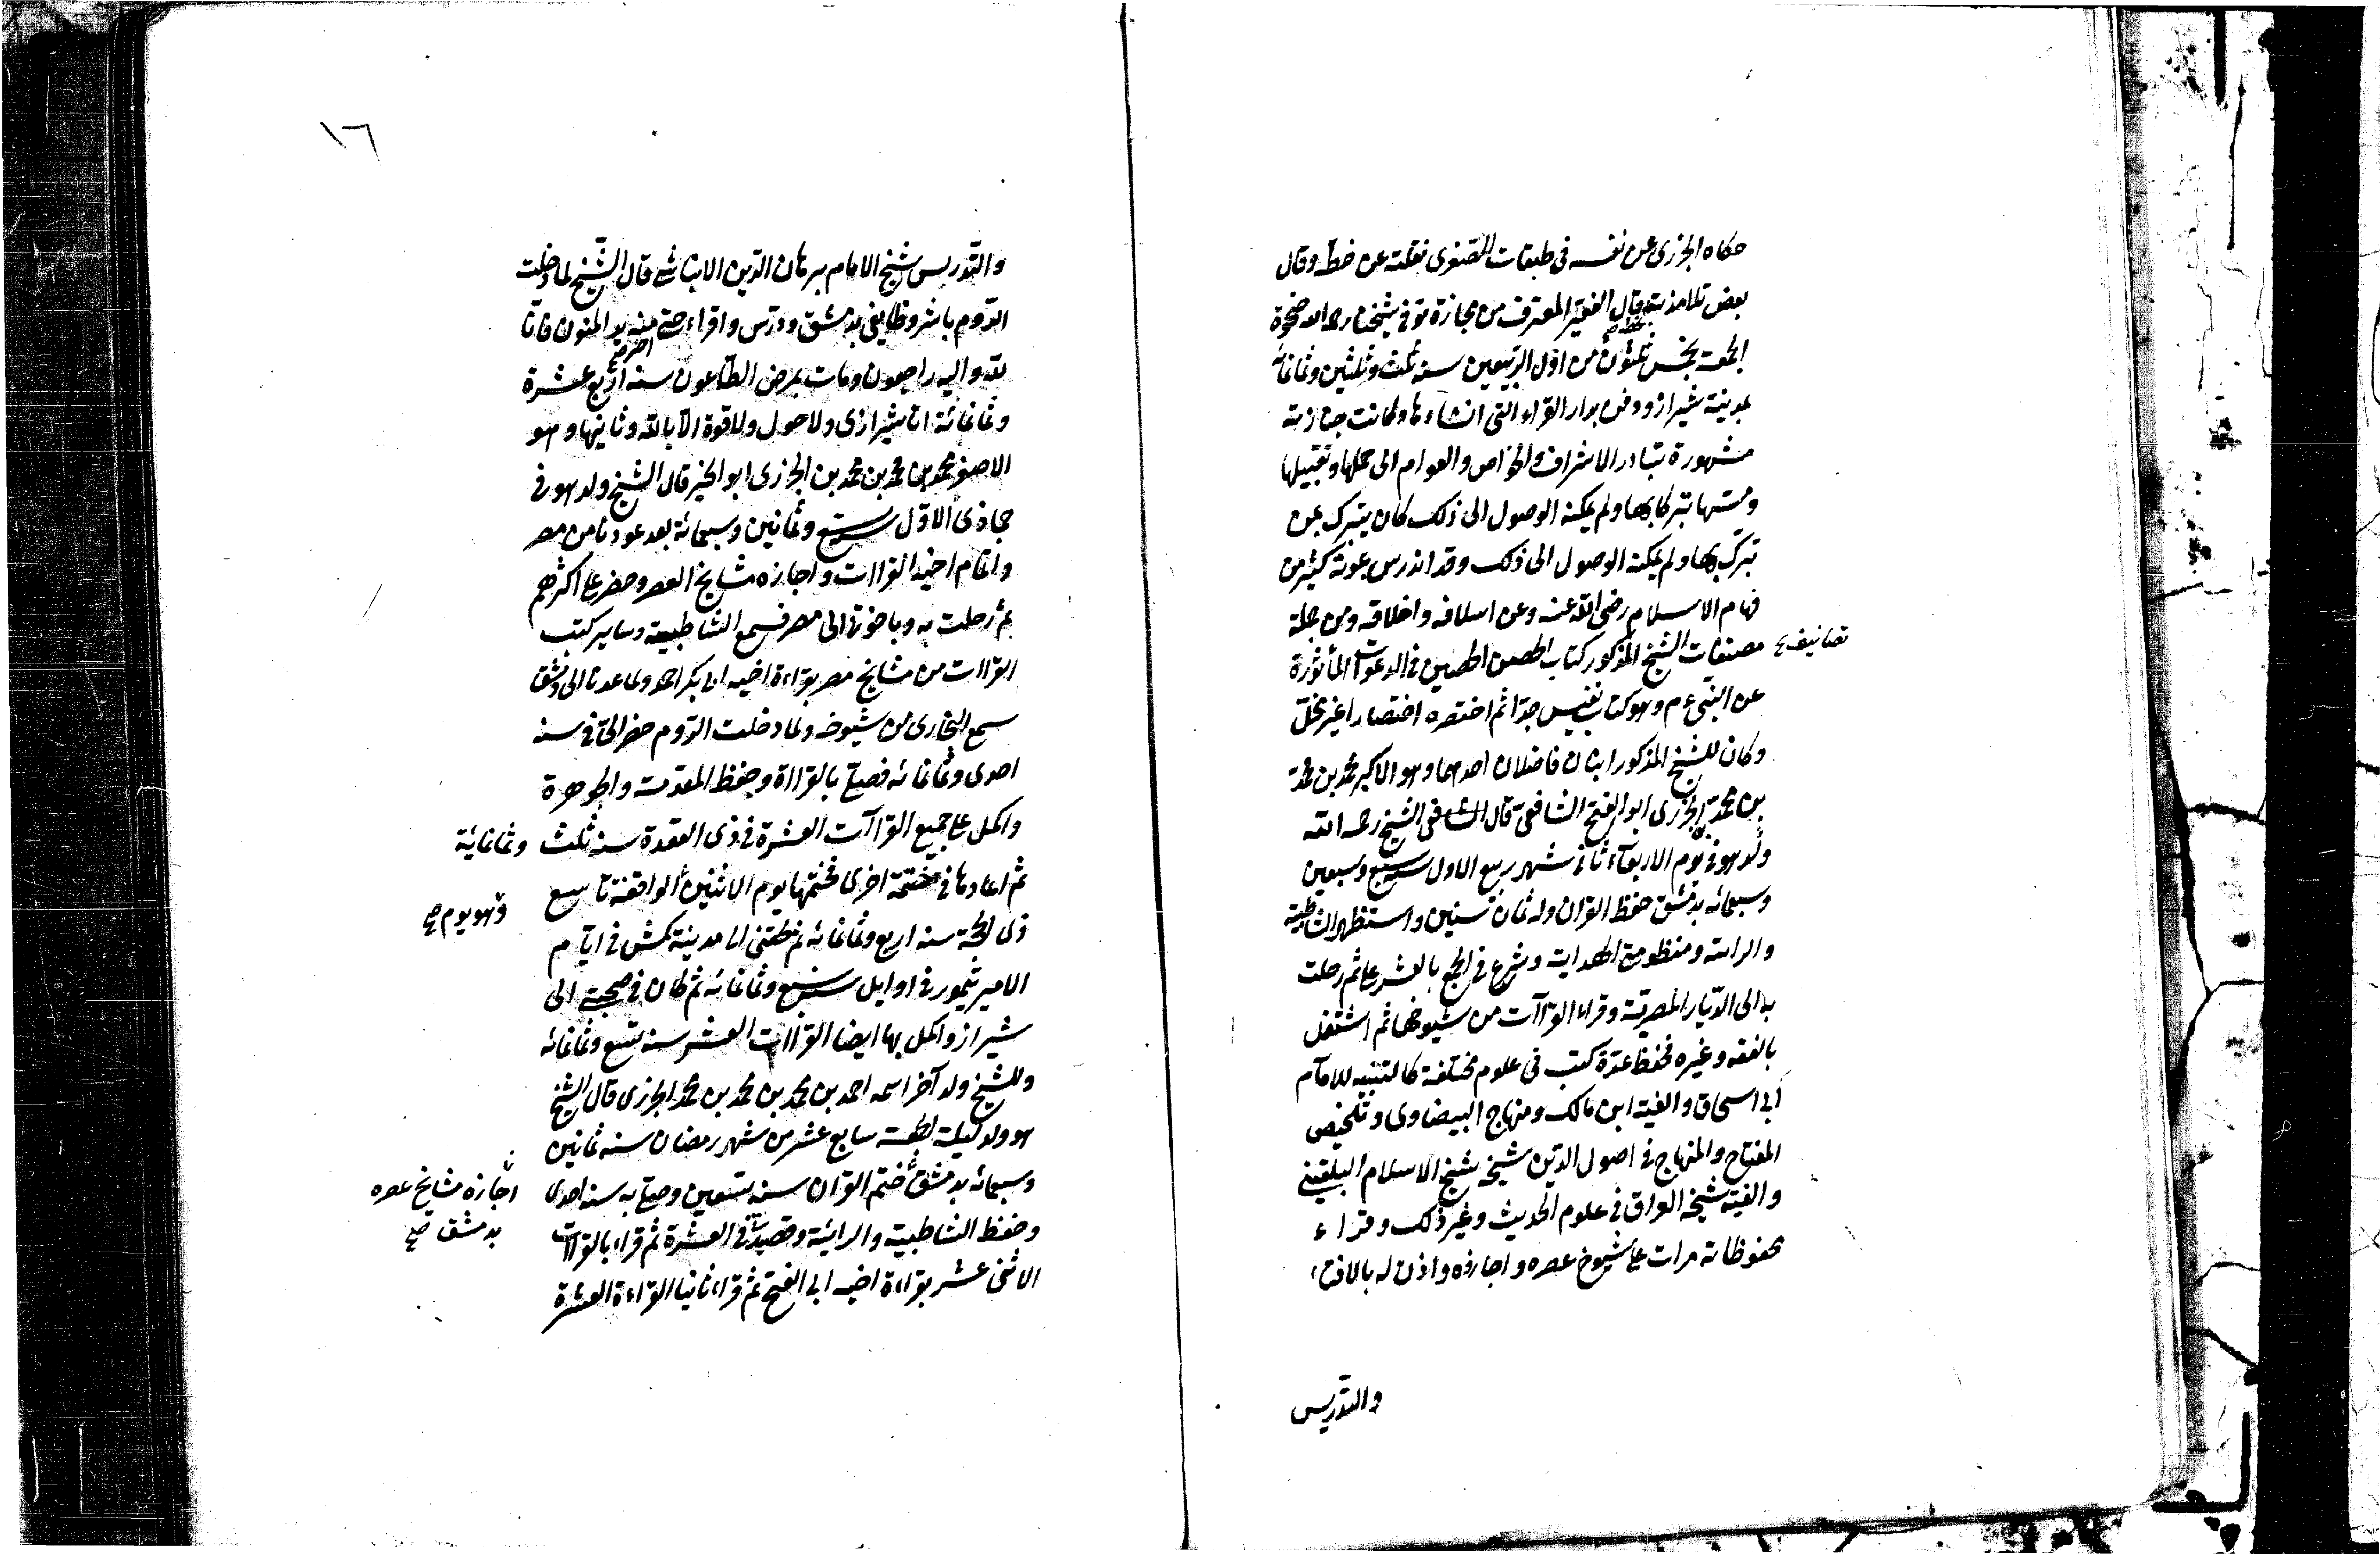 حكاه الجزرى عن نفسه فى طبقات الصغرى نقلته عن خطه وقال
بعض تلامذته قال الفقير المعترف من بحاره توفى شيخنا رحمه الله ضحوة
الجمعة لخمس خلون من اول الربيعين سنة ثلث وثلثين وثمانمائة
بمدينة شيراز ودفن بدار القراء التى انشاءها وكانت جنازته
مشهورة تبادر الاشراف والخواص والعوام الى حملها وتقبيلها
ومسها تبركا بها ولم يمكنه الوصول الى ذلك كان يتبرك بمن
تبرك بها ولم يمكنه الوصول الى ذلك وقد اندرس بموته كثير من
مهام الاسلام رضى الله عنه وعن اسلافه واخلافه ومن جملة
تصانيف
مصنفات الشيخ المذكور كتاب الحصن الحصين فى الدعوات المأثورة
عن النبى ءم وهو كتاب نفيس جدا ثم اختصره اختصارا غير مخل
وكان للشيخ المذكور ابنان فاضلان احدهما وهو الاكبر محمد بن محمد
بن محمد الجزرى ابو الفتح الشافعى قال الشافعى الشيخ رحمه الله
ولد هو فى يوم الاربعاء ثانى شهر ربيع الاول سنة سبع وسبعين
وسبعمائه بدمشق حفظ القران وله ثمان سنين واستظهر الشاطبية
والرائية ومنظومة الهداية وشرع فى الجمع بالعشر على ثم رحلت
به الى الديار المصرية وقراء القراآت من شيوخها ثم اشتغل
بالفقه وغيره فحفظ عدة كتب فى علوم مختلفة كالتنبيه للامام
ابى اسحاق والفية ابن مالك ومنهاج البيضاوى وتلخيص
المفتاح والمنهاج فى اصول الدين شيخه شيخ الاسلام البلقينى
والفية شيخه العراقى فى علوم الحديث وغير ذلك وقراء
محفوظاته مرات على شيوخ عصره واجازوه واذن له بالافتاء
والتدريس
١٦
والتدريس شيخ الامام برهان الدين الابناسى قال الشيخ لما دخلت
الروم باشر وظايفى بدمشق ودرس واقراء حتى منه يد المنون فانا
لله واليه راجعون ومات بمرض الطاعون سنة اربع عشرة
وثمانمائة انا بشيراز ولا حول ولا قوة الا بالله وثانيهما وهو
الاصغر محمد بن محمد بن محمد بن الجزرى ابو الخير قال الشيخ ولد هو فى
جمادى الاول سنة تسع وثمانين وسبعمائة بعد عودنا من مصر
واتمام اخيه القراات واجازه مشايخ العصر وحضر على اكثرهم
ثم رحلت به وباخوته الى مصر فسمع الشاطبية وساير كتب
القراات من مشايخ مصر بقراءة اخيه ابى بكر احمد ولما عدنا الى دمشق
سمع البخارى من شيوخه ولما دخلت الروم حضر الى فى سنه
احدى وثمانمائه فصلى بالقراة وحفظ المقدمة والجوهرة
واكمل على جميع القراآت العشرة فى ذى القعدة سنة ثلث وثمانمائة
ثم اعادها فى ختمة اخرى فختمها يوم الاثنين الواقفة تاسع
وهو يوم صح
ذى الحجة سنه اربع وثمانمائه ثم لحقنى الى مدينة كش فى ايام
الامير تيمور فى اوايل سنة سبع وثمانمائه ثم كان فى صحبتى الى
شيراز واكمل بها ايضا القراات العشر سنه تسع وثمانمائه
وللشيخ ولد آخر اسمه احمد بن محمد بن محمد بن محمد الجزرى قال الشيخ
هو ولد ليلة الجمعة سابع عشر من شهر رمضان سنه ثمانين
وسبعمائه بدمشق ختم القران سنه تسعين وصلى به سنه احدى
واجازه مشايخ عصره
بدمشق صح
وحفظ الشاطبية والرائية وقصيدتى فى العشرة ثم قراء بالقراات
الاثنى عشر بقراءة اخيه ابى الفتح ثم قراء ثانيا القراءة العشرة